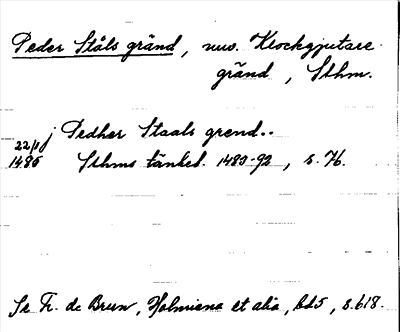 Peder Ståls gränd, nuv. Klockgjutare
gränd, Sthm.
22/1 j Pedher Staals grend..
1486 Sthms tänkeb. 1483-92, s. 76.
Se Fr. de Brun, Holmiana et alia, bd 5, s. 618.